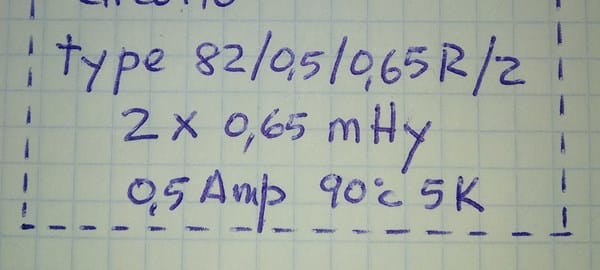 type 82/0,5/0,65R/2
2 x 0,65 mHy
0,5 Amp 90°c 5K